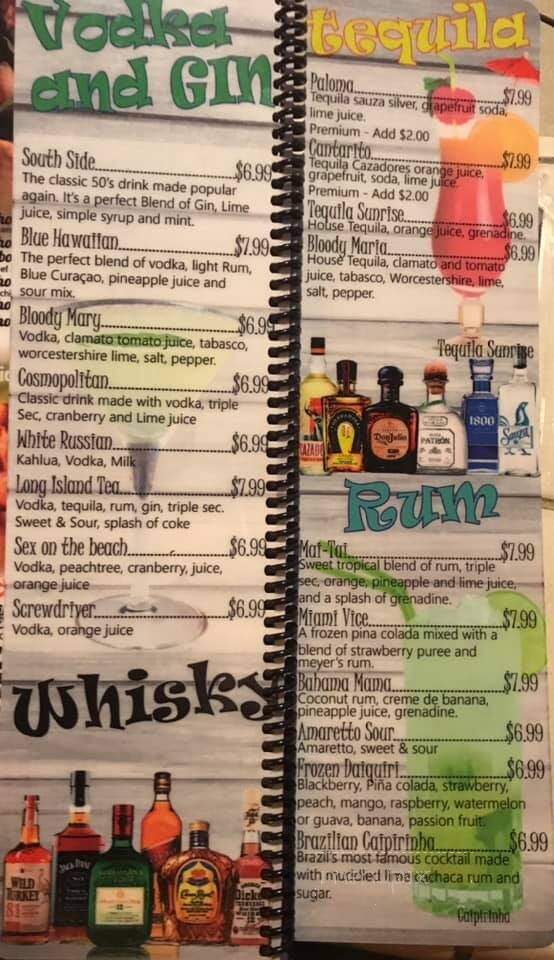 Vodka
and GIN
South Side............$6.99
The classic 50's drink made popular
again. It's a perfect Blend of Gin, Lime
juice, simple syrup and mint.
Blue Hawaiian............$7.99
The perfect blend of vodka, light Rum,
Blue Curaçao, pineapple juice and
sour mix.
Bloody Mary............$6.99
Vodka, clamato tomato juice, tabasco,
worcestershire lime, salt, pepper.
Cosmopolitan............$6.99
Classic drink made with vodka, triple
Sec, cranberry and Lime juice
White Russian............$6.99
Kahlua, Vodka, Milk
Long Island Tea............$7.99
Vodka, tequila, rum, gin, triple sec.
Sweet & Sour, splash of coke
Sex on the beach............$6.99
Vodka, peachtree, cranberry, juice,
orange juice
Screwdriver............$6.99
Vodka, orange juice
Whisky
WILD
TURKEY
tequila
Paloma............$7.99
Tequila sauza silver, grapefruit soda,
lime juice.
Premium - Add $2.00
Cantarito............$7.99
Tequila Cazadores orange juice,
grapefruit, soda, lime juice.
Premium - Add $2.00
Tequila Sunrise............$6.99
House Tequila, orange juice, grenadine.
Bloody Maria............$6.99
House Tequila, clamato and tomato
juice, tabasco, Worcestershire, lime,
salt, pepper.
Tequila Sunrise
Don Julio
PATRÓN
1800
Sauza
Rum
Mai-Tai............$7.99
Sweet tropical blend of rum, triple
sec, orange, pineapple and lime juice,
and a splash of grenadine.
Miami Vice............$7.99
A frozen pina colada mixed with a
blend of strawberry puree and
meyer's rum.
Bahama Mama............$7.99
Coconut rum, creme de banana,
pineapple juice, grenadine.
Amaretto Sour............$6.99
Amaretto, sweet & sour
Frozen Daiquiri............$6.99
Blackberry, Piña colada, strawberry,
peach, mango, raspberry, watermelon
or guava, banana, passion fruit.
Brazilian Caipirinha............$6.99
Brazil's most famous cocktail made
with muddled lime cachaca rum and
sugar.
Caipirinha